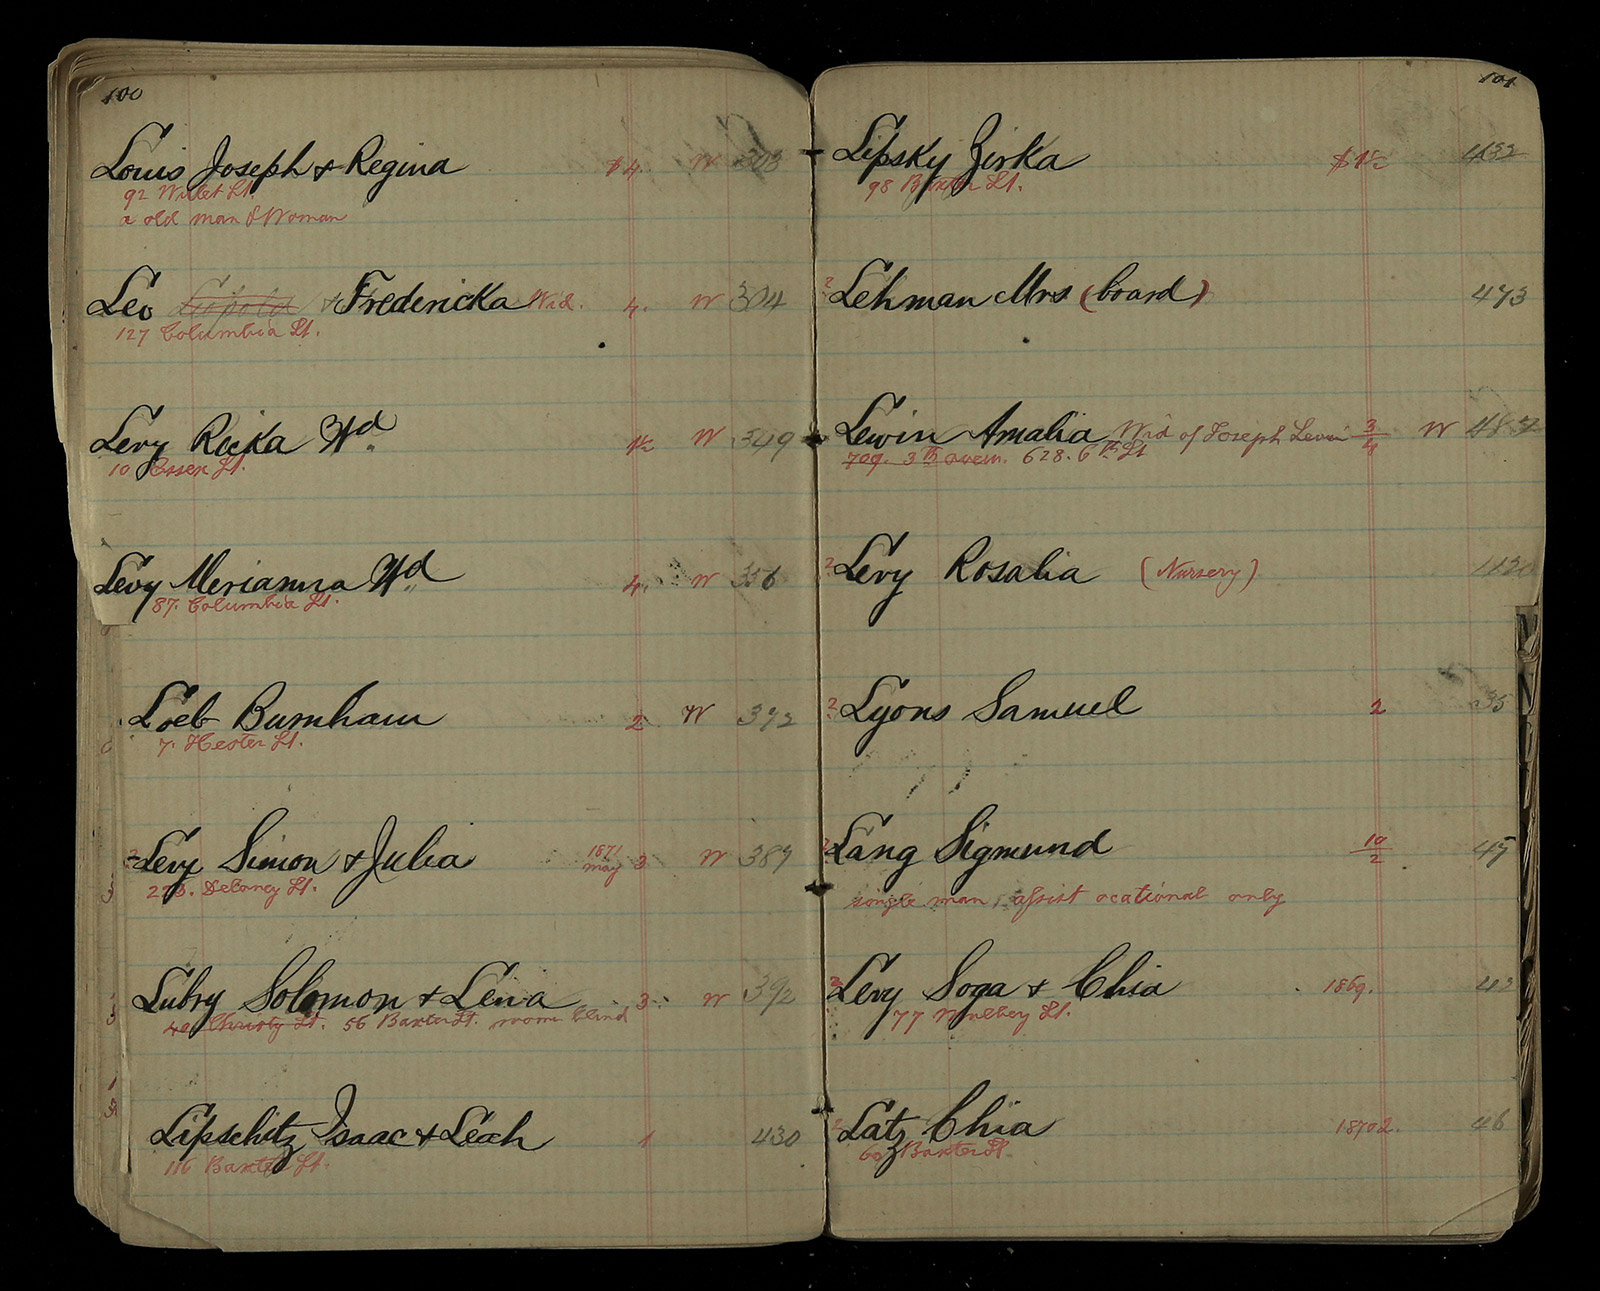 100
Louis Joseph & Regina $4. W 303
92 Willet St.
a old man & Woman
Leo Leopold & Fredericka Wid. 4. W 304
127 Columbia St.
Levy Ricka Wd. W 349
10 Essex St.
Levy Merianna Wd. 4. W 356
87. Columbia St.
Loeb Burnham 2 W 392
7. Hester St.
Levy Simon & Julia 1871 may 3 W 389
Delancy St.
Lubry Solomon & Lena 3. W 392
40 Christy St. 56 Baxter St. blind
Lipschitz Isaac & Leah 1 430
116 Baxter St.
101
Lipsky Zirka 432
98 Baxter St.
2 Lehman Mrs (board) 473
Lewin Amalia Wid of Joseph Lewin 3/4 W
709. 3th aven. 628. 6th St
2 Levy Rosalia (Nursery) 1130
2 Lyons Samuel 2 35
2 Lang Sigmund 10/2
single man assist ocational only
2 Levy Soga & Chia 1869.
77 Mulbey St.
2 Latz Chia 1870 2. 46
60 Baxter St.